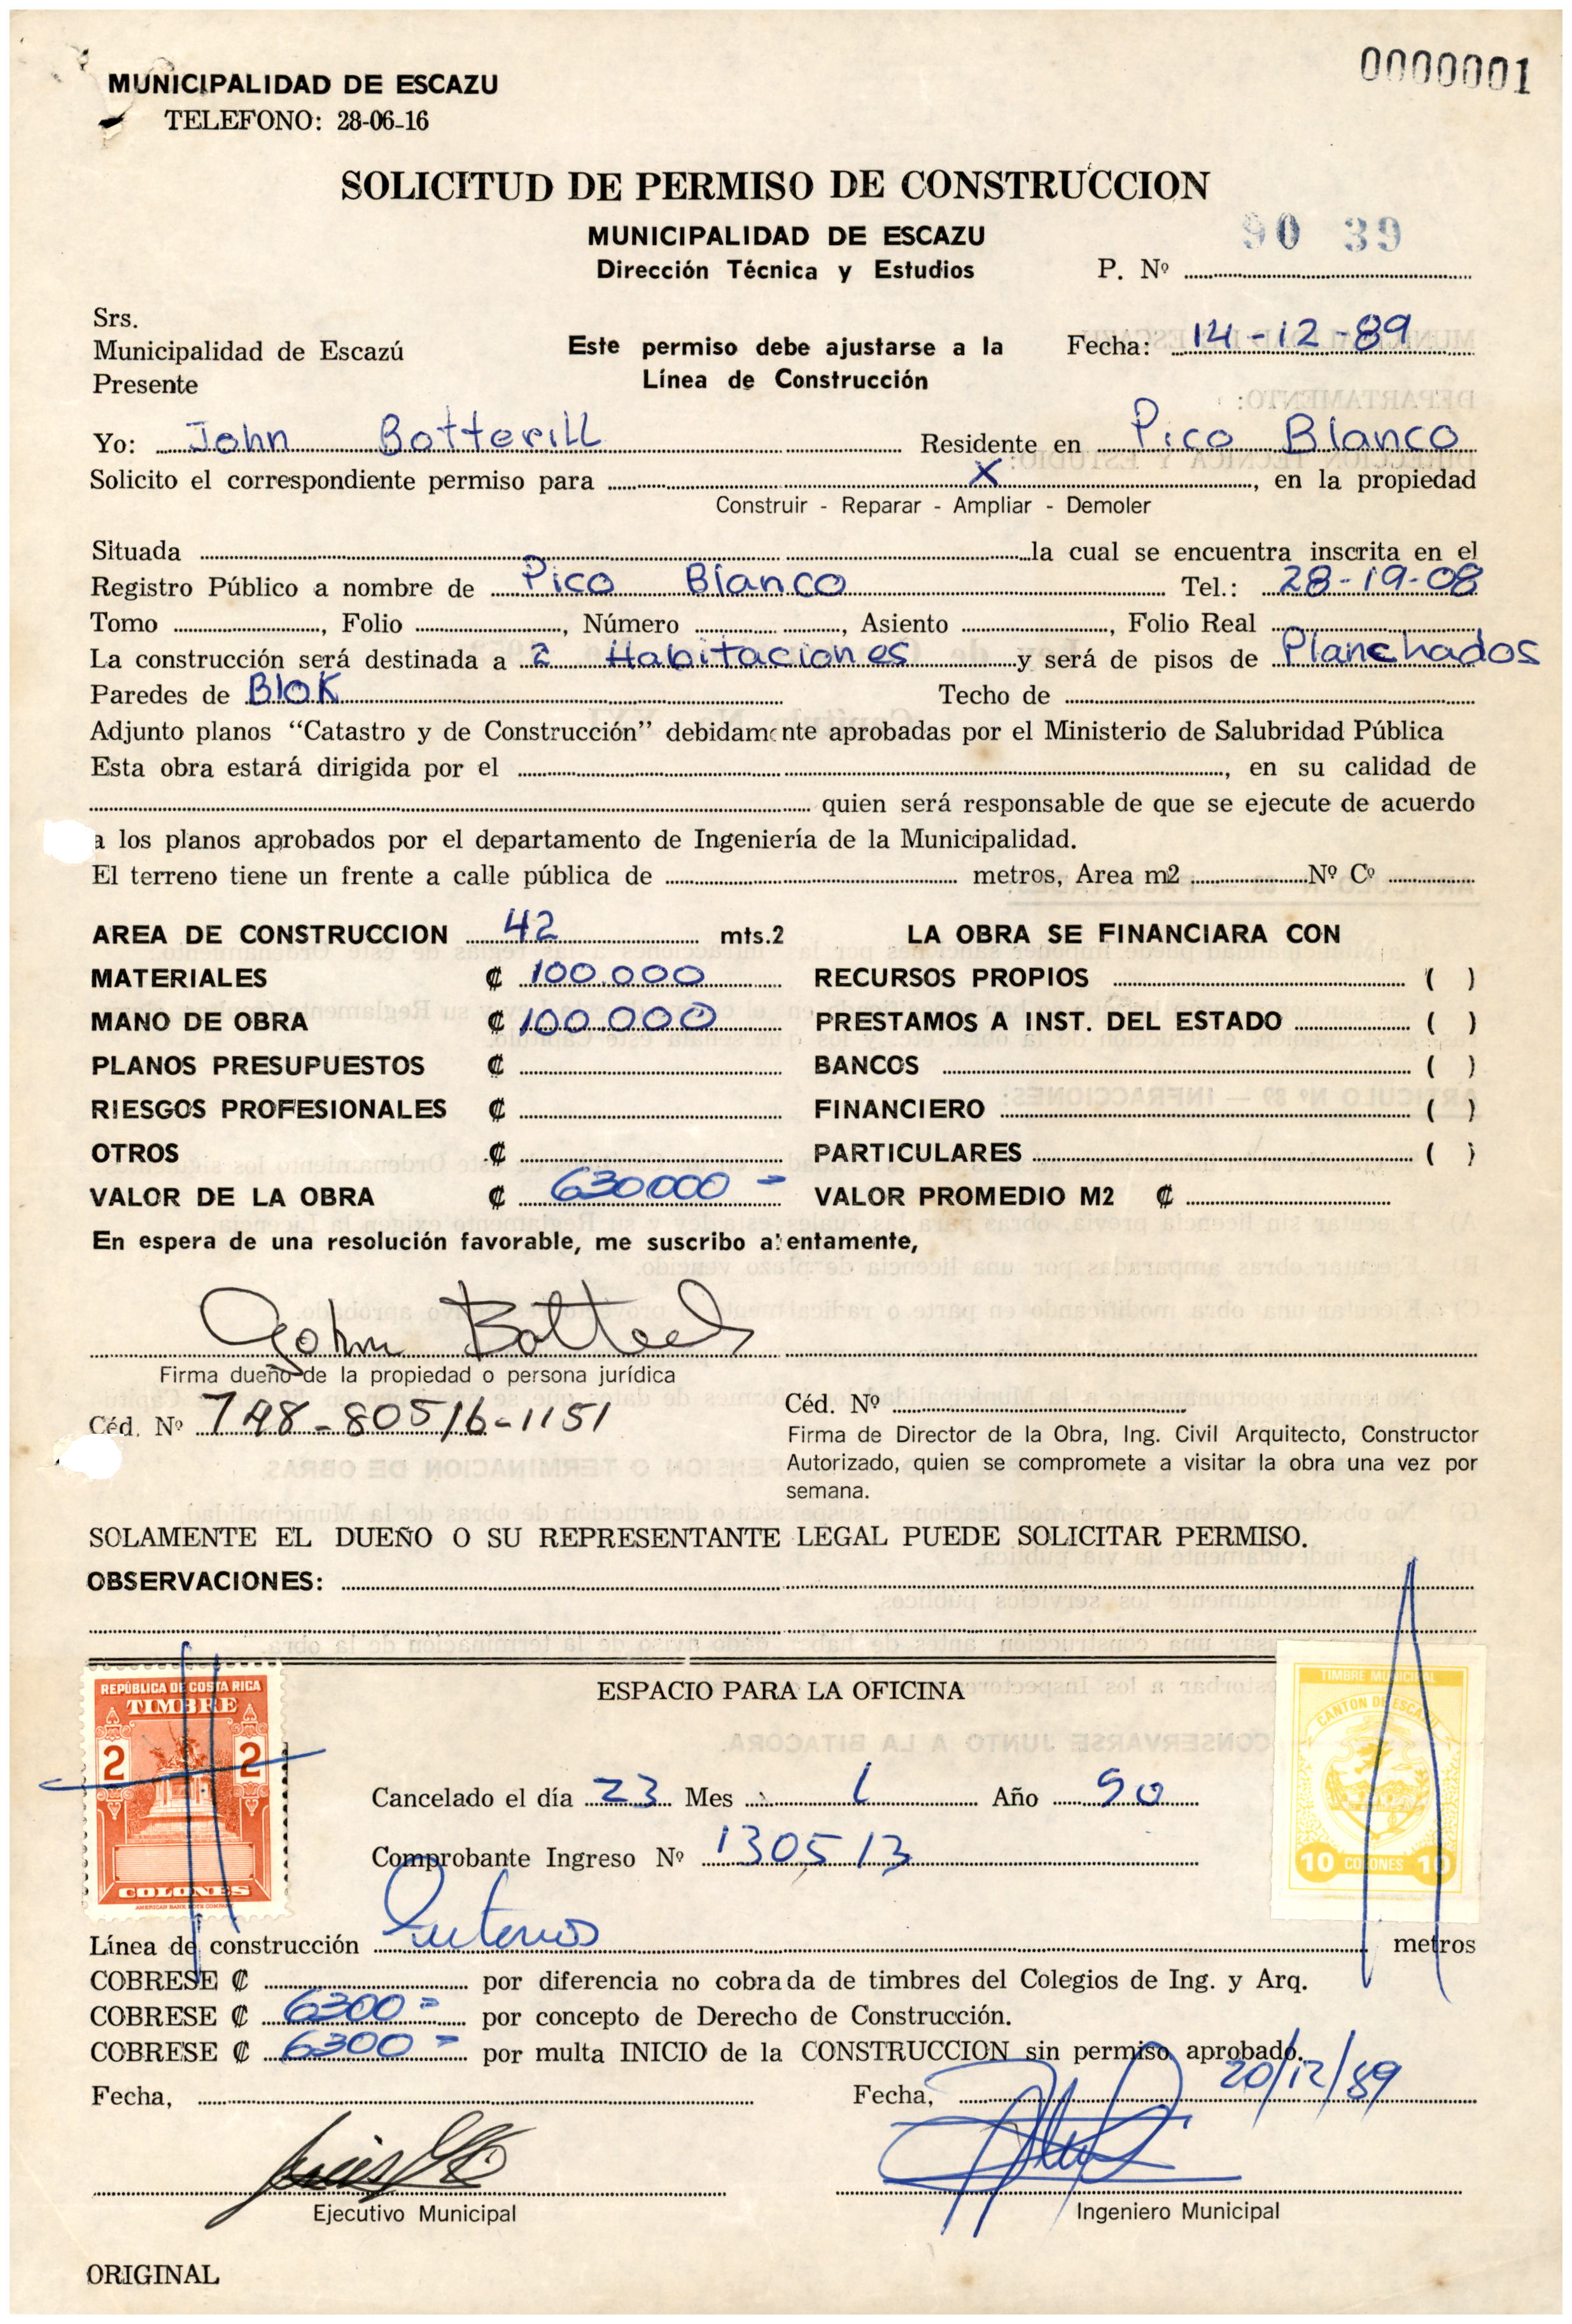 0000001
MUNICIPALIDAD DE ESCAZU
TELEFONO: 28-06-16
SOLICITUD DE PERMISO DE CONSTRUCCION
MUNICIPALIDAD DE ESCAZU
Dirección Técnica y Estudios
P. Nº 90 39
Srs.
Municipalidad de Escazú
Presente
Este permiso debe ajustarse a la
Línea de Construcción
Fecha: 14-12-89
Yo: John Botterill Residente en Pico Blanco
Solicito el correspondiente permiso para X, en la propiedad
Construir - Reparar - Ampliar - Demoler
Situada la cual se encuentra inscrita en el
Registro Público a nombre de Pico Blanco Tel.: 28-19-08
Tomo , Folio , Número , Asiento , Folio Real
La construcción será destinada a 2 Habitaciones y será de pisos de Planchados
Paredes de Blok Techo de
Adjunto planos "Catastro y de Construcción" debidamente aprobadas por el Ministerio de Salubridad Pública
Esta obra estará dirigida por el , en su calidad de
quien será responsable de que se ejecute de acuerdo
a los planos aprobados por el departamento de Ingeniería de la Municipalidad.
El terreno tiene un frente a calle pública de metros, Area m2 Nº Cº
AREA DE CONSTRUCCION 42 mts.2 LA OBRA SE FINANCIARA CON
MATERIALES ₡ 100.000 RECURSOS PROPIOS ( )
MANO DE OBRA ₡ 100.000 PRESTAMOS A INST. DEL ESTADO ( )
PLANOS PRESUPUESTOS ₡ BANCOS ( )
RIESGOS PROFESIONALES ₡ FINANCIERO ( )
OTROS ₡ PARTICULARES ( )
VALOR DE LA OBRA ₡ 630000 = VALOR PROMEDIO M2 ₡
En espera de una resolución favorable, me suscribo atentamente,
John Botterill
Firma dueño de la propiedad o persona jurídica
Céd. Nº 7A8-80516-1151
Céd. Nº
Firma de Director de la Obra, Ing. Civil Arquitecto, Constructor
Autorizado, quien se compromete a visitar la obra una vez por
semana.
SOLAMENTE EL DUEÑO O SU REPRESENTANTE LEGAL PUEDE SOLICITAR PERMISO.
OBSERVACIONES:
REPÚBLICA DE COSTA RICA
TIMBRE
2 2
COLONES
AMERICAN BANK NOTE COMPANY
ESPACIO PARA LA OFICINA
TIMBRE MUNICIPAL
CANTON DE ESCAZU
10 COLONES 10
Cancelado el día 23 Mes 1 Año 90
Comprobante Ingreso Nº 130513
Línea de construcción metros
COBRESE ₡ por diferencia no cobrada de timbres del Colegios de Ing. y Arq.
COBRESE ₡ 6300= por concepto de Derecho de Construcción.
COBRESE ₡ 6300= por multa INICIO de la CONSTRUCCION sin permiso aprobado.
Fecha, Fecha, 20/12/89
Ejecutivo Municipal
Ingeniero Municipal
ORIGINAL